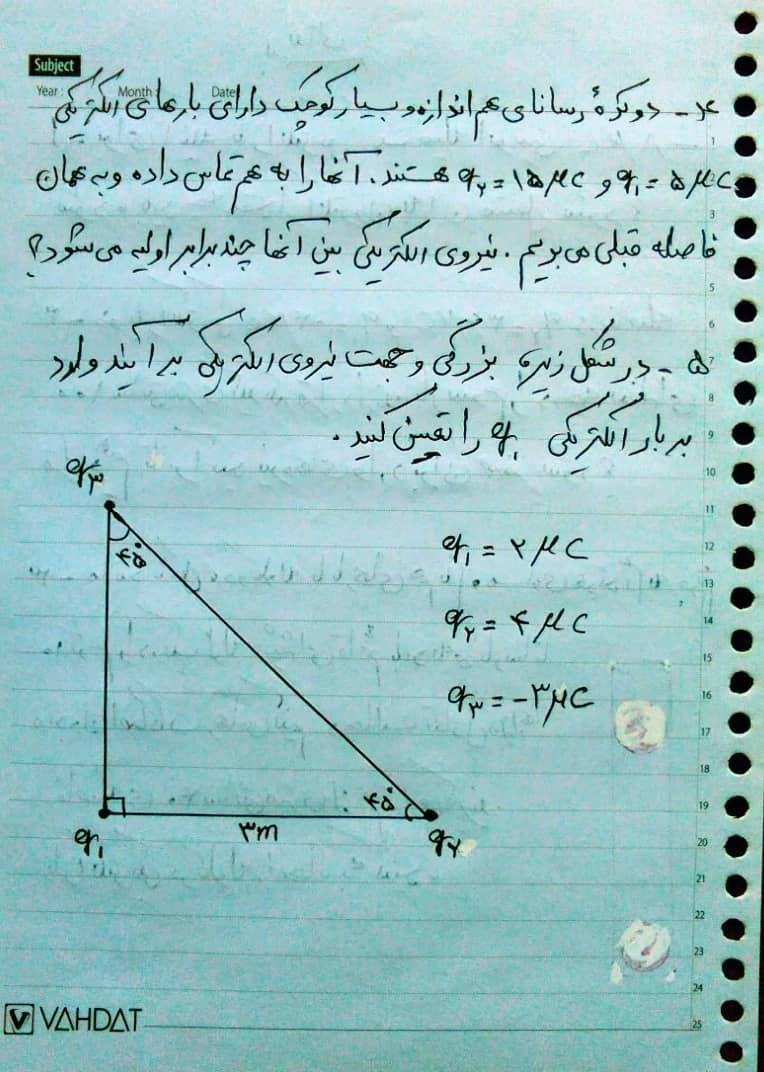 Subject
Year : Month : Date
۴- دو کرهٔ رسانای هم اندازه و بسیار کوچک دارای بارهای الکتریکی
q₁ = ۵ μC و q₂ = ۱۵ μC هستند. آنها را به هم تماس داده و به همان
فاصله قبلی می بریم. نیروی الکتریکی بین آنها چند برابر اولیه می شود؟
۵- در شکل زیر، بزرگی و جهت نیروی الکتریکی برآیند وارد
بر بار الکتریکی q₁ را تعیین کنید.
q₃
۴۵°
q₁ = ۲ μC
q₂ = ۴ μC
q₃ = -۳ μC
۴۵°
q₁ ۳m q₂
1
3
5
6
7
8
9
10
11
12
13
14
15
16
17
18
19
20
21
22
23
24
25
V VAHDAT